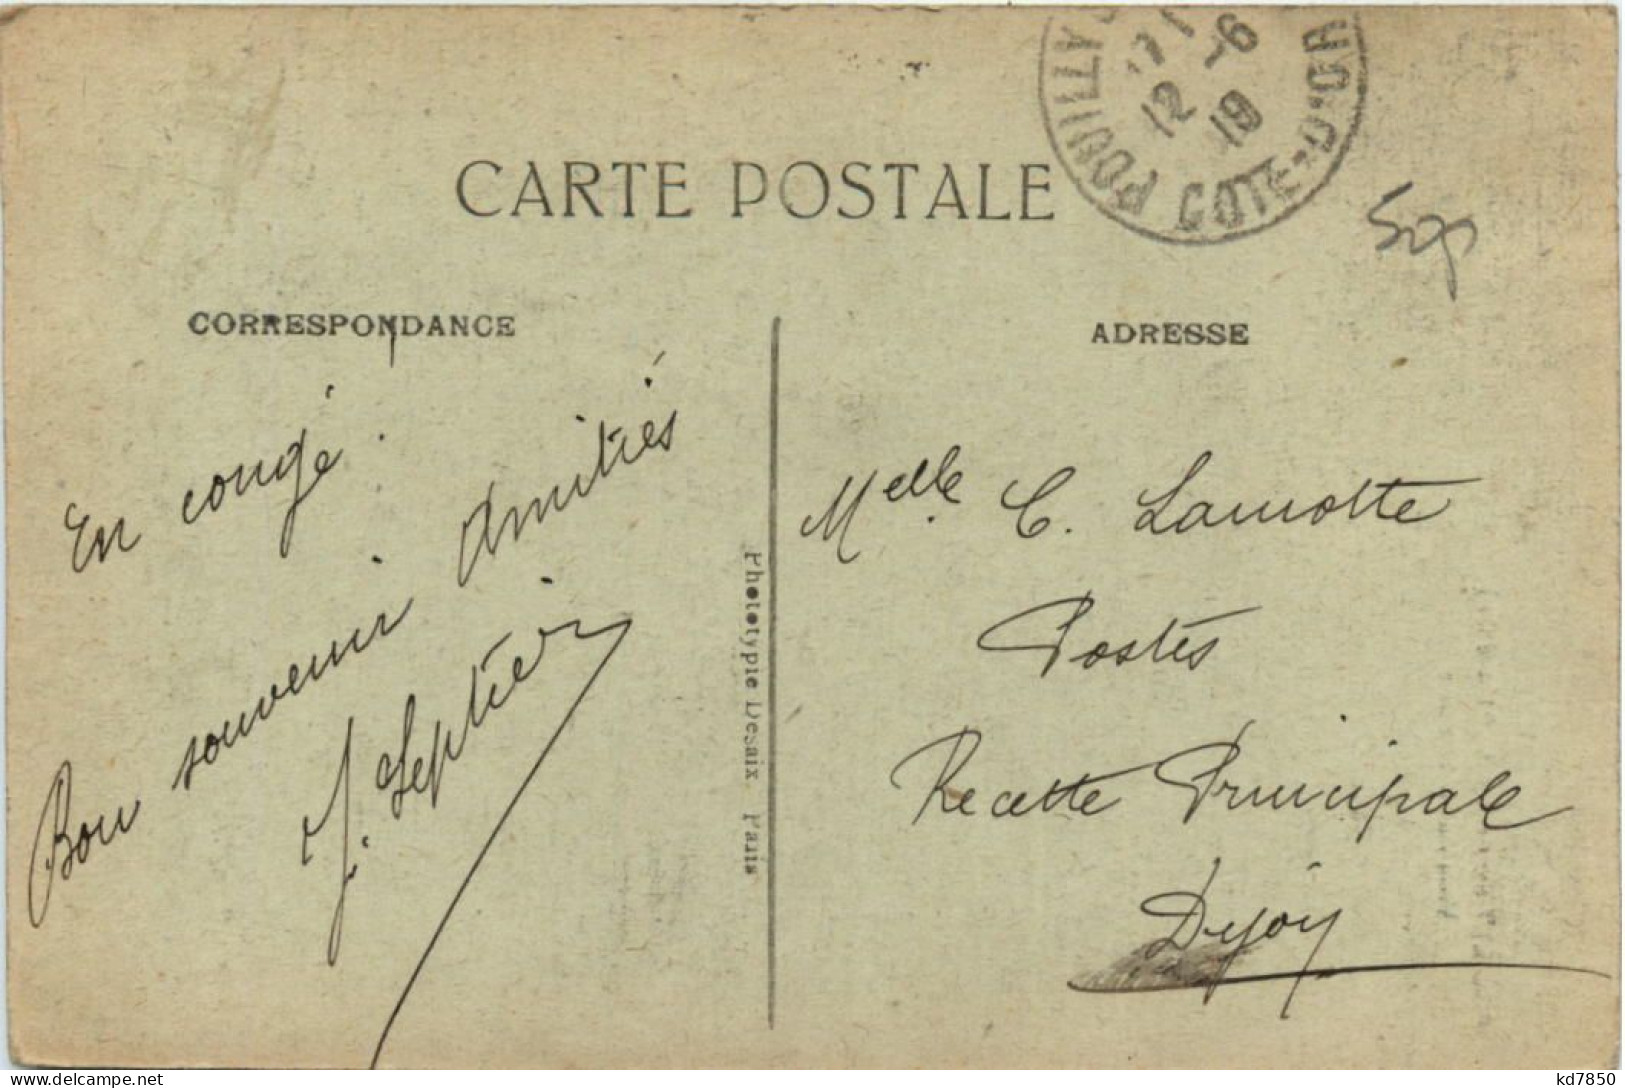 CARTE POSTALE
POUILLY
COTE-D'OR
12 -6
19
CORRESPONDANCE
En congé !
Bon souvenir Amitiés
J. Septier
Phototypie Desaix. Paris
ADRESSE
Melle C. Lamotte
Postes
Recette Principale
Dijon
kd7850